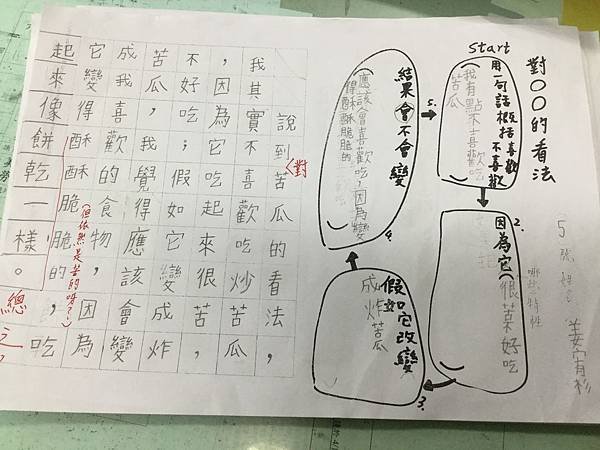 對〇〇的看法
5 號 姓名 姜宥杉
Start
用一句話概括喜歡不喜歡
(我有點不喜歡吃
苦瓜
2.
因為它(很苦好吃
哪些特性
3.
假如它改變
成炸苦瓜
4.
結果會不會變
(應該會喜歡吃，因為變
得酥酥脆脆的
5.
說到對苦瓜的看法，
我其實不喜歡吃炒苦瓜，
，因為它吃起來很苦，
不好吃；假如它變成炸
苦瓜，我覺得應該會變
成我喜歡的食物，因為
它變得酥酥脆脆的，吃
(但依然是苦的呀？)
起來像餅乾一樣。總之，